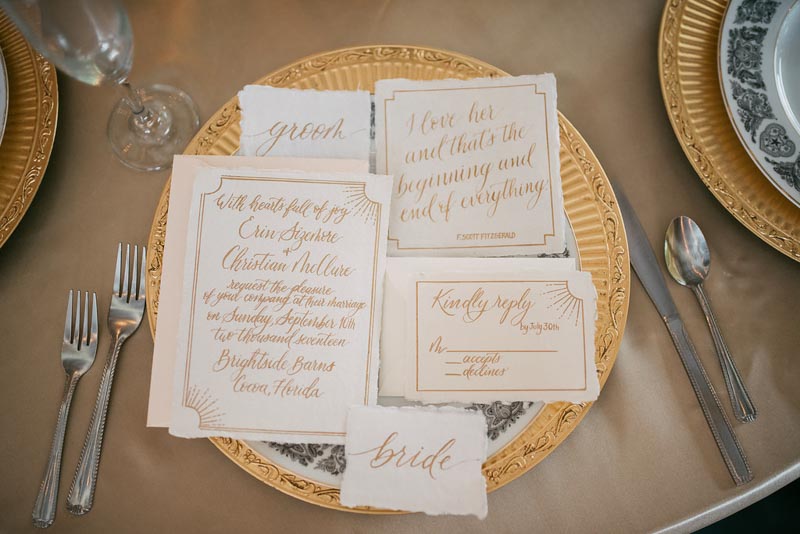 groom
I love her
and that's the
beginning and
end of everything.
F. SCOTT FITZGERALD
With hearts full of joy
Erin Sizemore
+
Christian McClure
request the pleasure
of your company at their marriage
on Sunday, September 10th
two thousand seventeen
Brightside Barns
Cocoa, Florida
Kindly reply
by July 30th
M
accepts
declines
bride